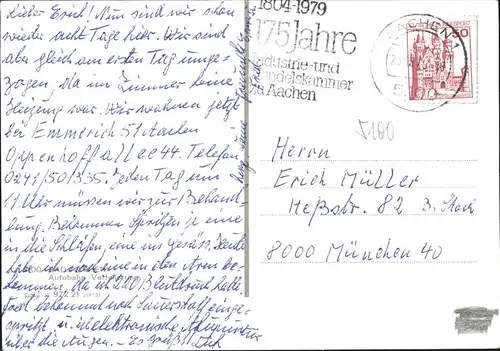 Lieber Erich! Nun sind wir schon
wieder acht Tage hier. Wir sind
aber gleich am ersten Tag umge-
zogen, da im Zimmer keine
Heizung war. Wir wohnen jetzt
bei Emmerich 51 Aachen
Oppenhoffallee 44. Telefon
0241/501335. Jeden Tag um
11 Uhr müssen wir zur Behand-
lung. Bekommen Spritzen je eine
in die Schläfen, eine ins Gesäss. Heute
habe ich noch eine in den Arm be-
kommen, da ich 220 Blutdruck hatte
bekommt noch Sauerstoff einge-
spritzt, u. elektronische Akupunktur
über die Augen. - Es grüßt Dich
1804-1979
175 Jahre
Industrie- und
Handelskammer
zu Aachen
AACHEN 1
50
5100
Herrn
Erich Müller
Heßstr. 82 3. Stock
8000 München 40